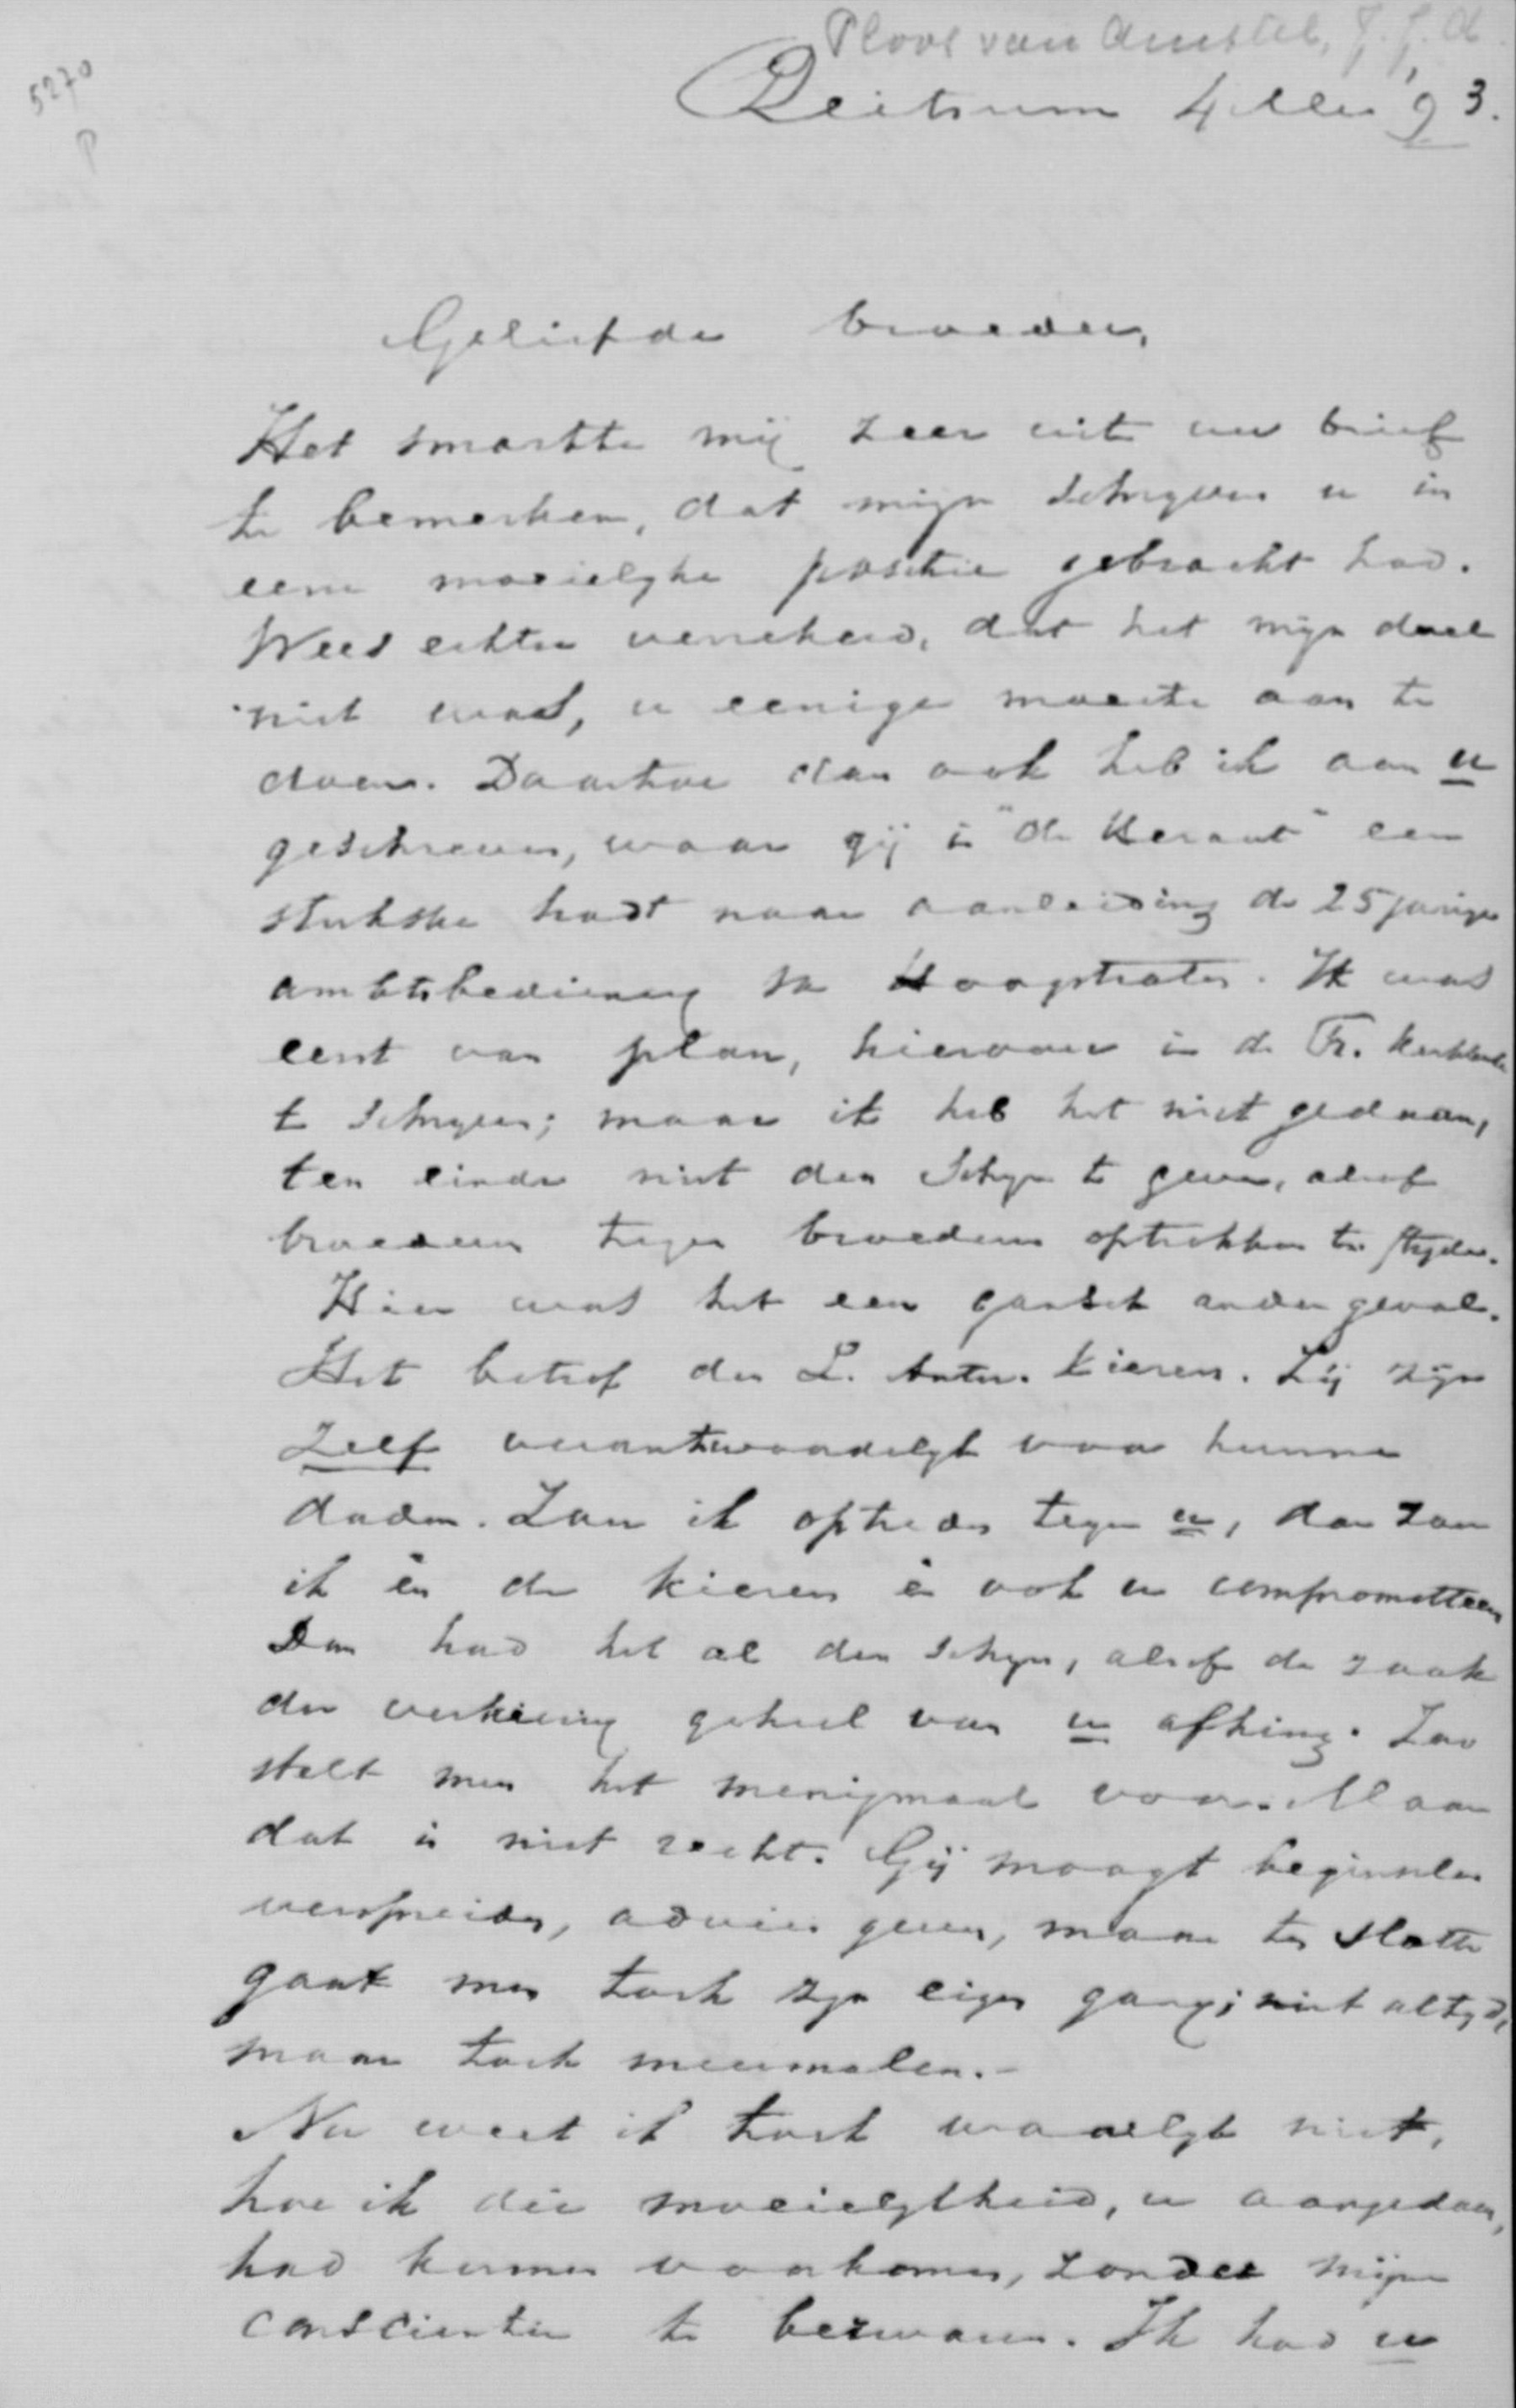 Ploos van Amstel, J. J. A.
5270
P
Reitsum 4 Mei '93.
Geliefde broeder,
Het smartte mij zeer uit uw brief
te bemerken, dat mijn schrijven u in
eene moeielijke positie gebracht had.
Wees echter verzekerd, dat het mijn doel
niet was, u eenige moeite aan te
doen. Daartoe dan ook heb ik aan u
geschreven, waar gij in "de Heraut" een
stukske hadt naar aanleiding der 25 jarige
ambtsbediening van Hoogstraten. Ik was
eerst van plan, hierover in de Fr. Kerkbode
te schrijven; maar ik heb het niet gedaan,
ten einde niet den schijn te geven, alsof
broederen tegen broederen optrekken ten strijde.
Hier was het een gansch ander geval.
Het betrof den L. Anten. kiezers. Zij zijn
zelf verantwoordelijk voor hunne
daden. Zou ik optreden tegen u, dan zou
ik èn de kiezers èn ook u compromitteeren
Dan had het al den schijn, alsof de zaak
der verkiezing geheel van u afhing. Zoo
stelt men het menigmaal voor. Maar
dat is niet recht. Gij moogt beginselen
verspreiden, advies geven, maar ten slotte
gaat men toch zijn eigen gang; niet altijd,
maar toch meermalen.-
Nu weet ik toch waarlijk niet,
hoe ik die moeielijkheid, u aangedaan,
had kunnen voorkomen, zonder mijne
conscientie te bezwaren. Ik had u